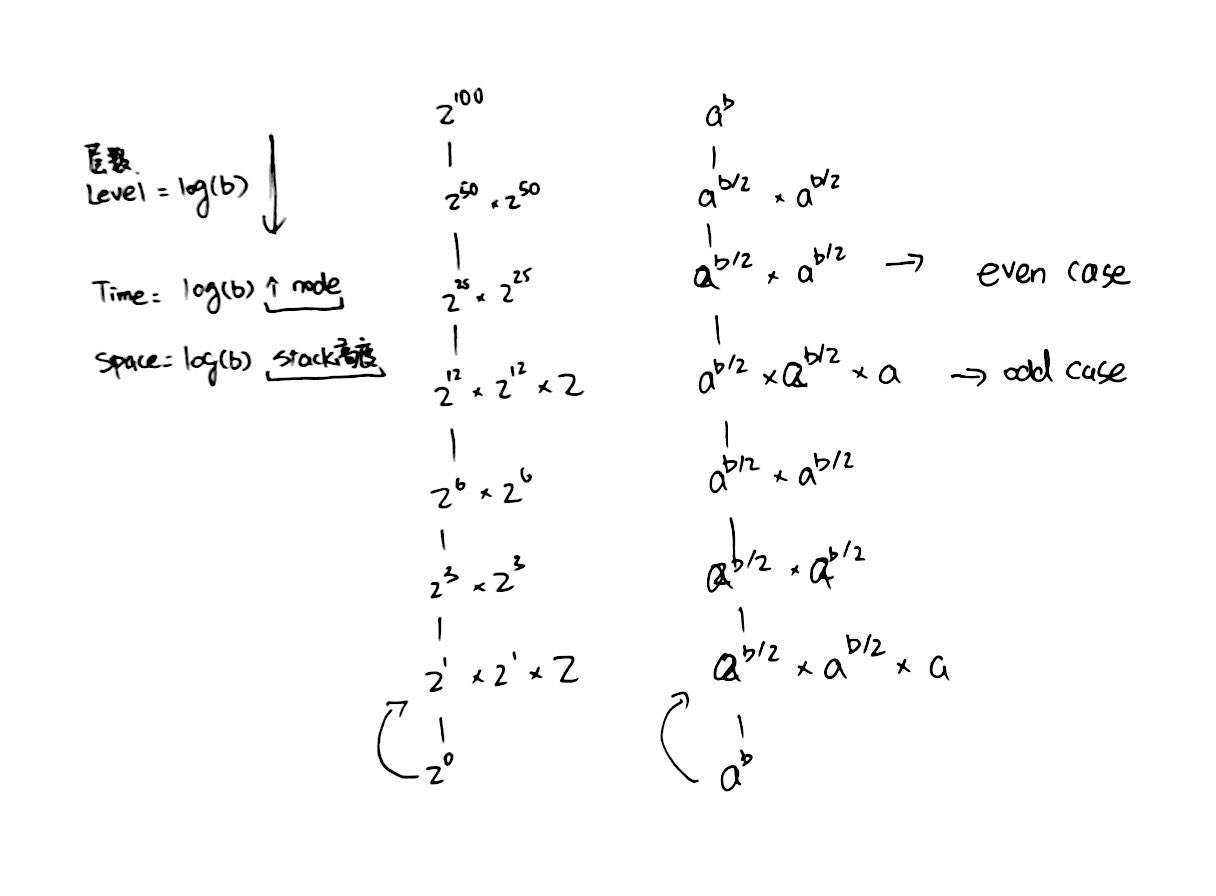 层数
Level = log(b)
Time = log(b) ↑ node
Space = log(b) stack高度
2^100
2^50 × 2^50
2^25 × 2^25
2^12 × 2^12 × 2
2^6 × 2^6
2^3 × 2^3
2^1 × 2^1 × 2
2^0
a^b
a^b/2 × a^b/2
a^b/2 × a^b/2 → even case
a^b/2 × a^b/2 × a → odd case
a^b/2 × a^b/2
a^b/2 × a^b/2
a^b/2 × a^b/2 × a
a^b